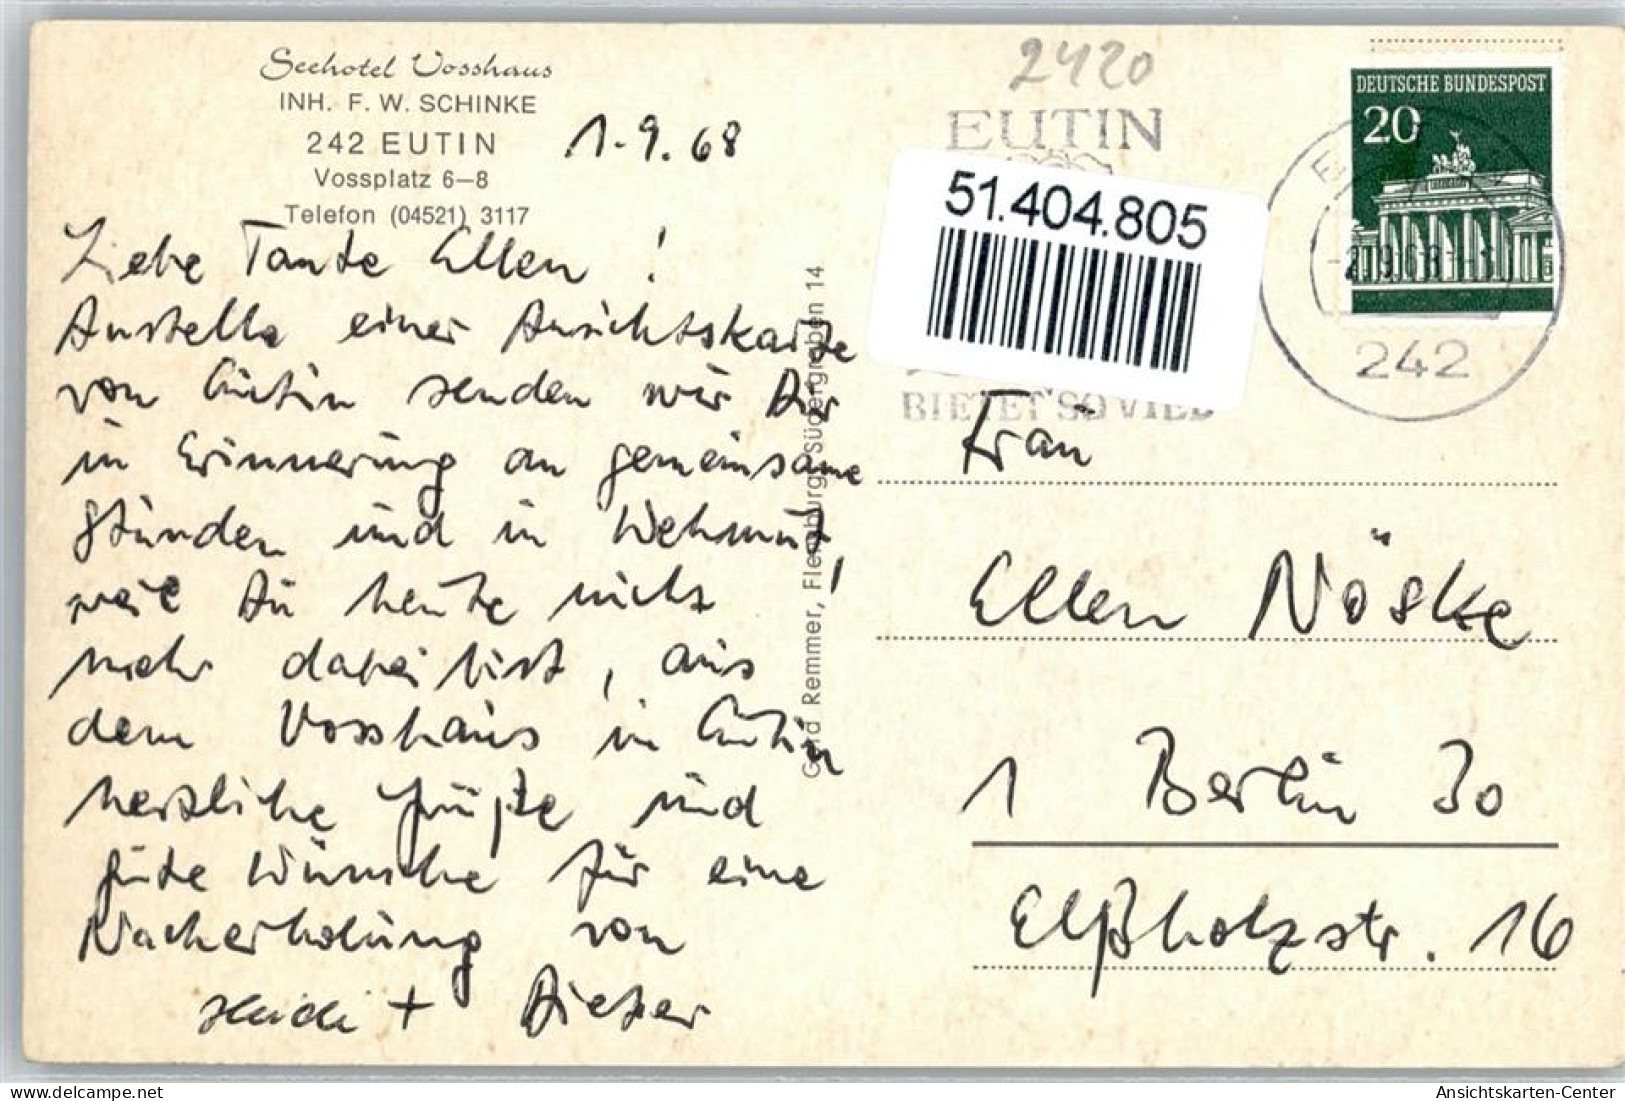 Seehotel Vosshaus
INH. F. W. SCHINKE
242 EUTIN
Vossplatz 6–8
Telefon (04521) 3117
1.9.68
Liebe Tante Ellen!
Anstelle einer Ansichtskarte
von Eutin senden wir Dir
in Erinnerung an gemeinsame
Stunden und in Wehmut,
weil Du heute nicht
mehr dabei bist, aus
dem Vosshaus in Eutin
herzliche Grüße und
gute Wünsche für eine
Nacherholung von
Heidi + Dieter
Gerd Remmer, Flensburg, Südergraben 14
2420
EUTIN
51.404.805
BIETET SO VIEL
DEUTSCHE BUNDESPOST
20
242
Frau
Ellen Nöske
1 Berlin 30
Elßholzstr. 16
Ansichtskarten-Center